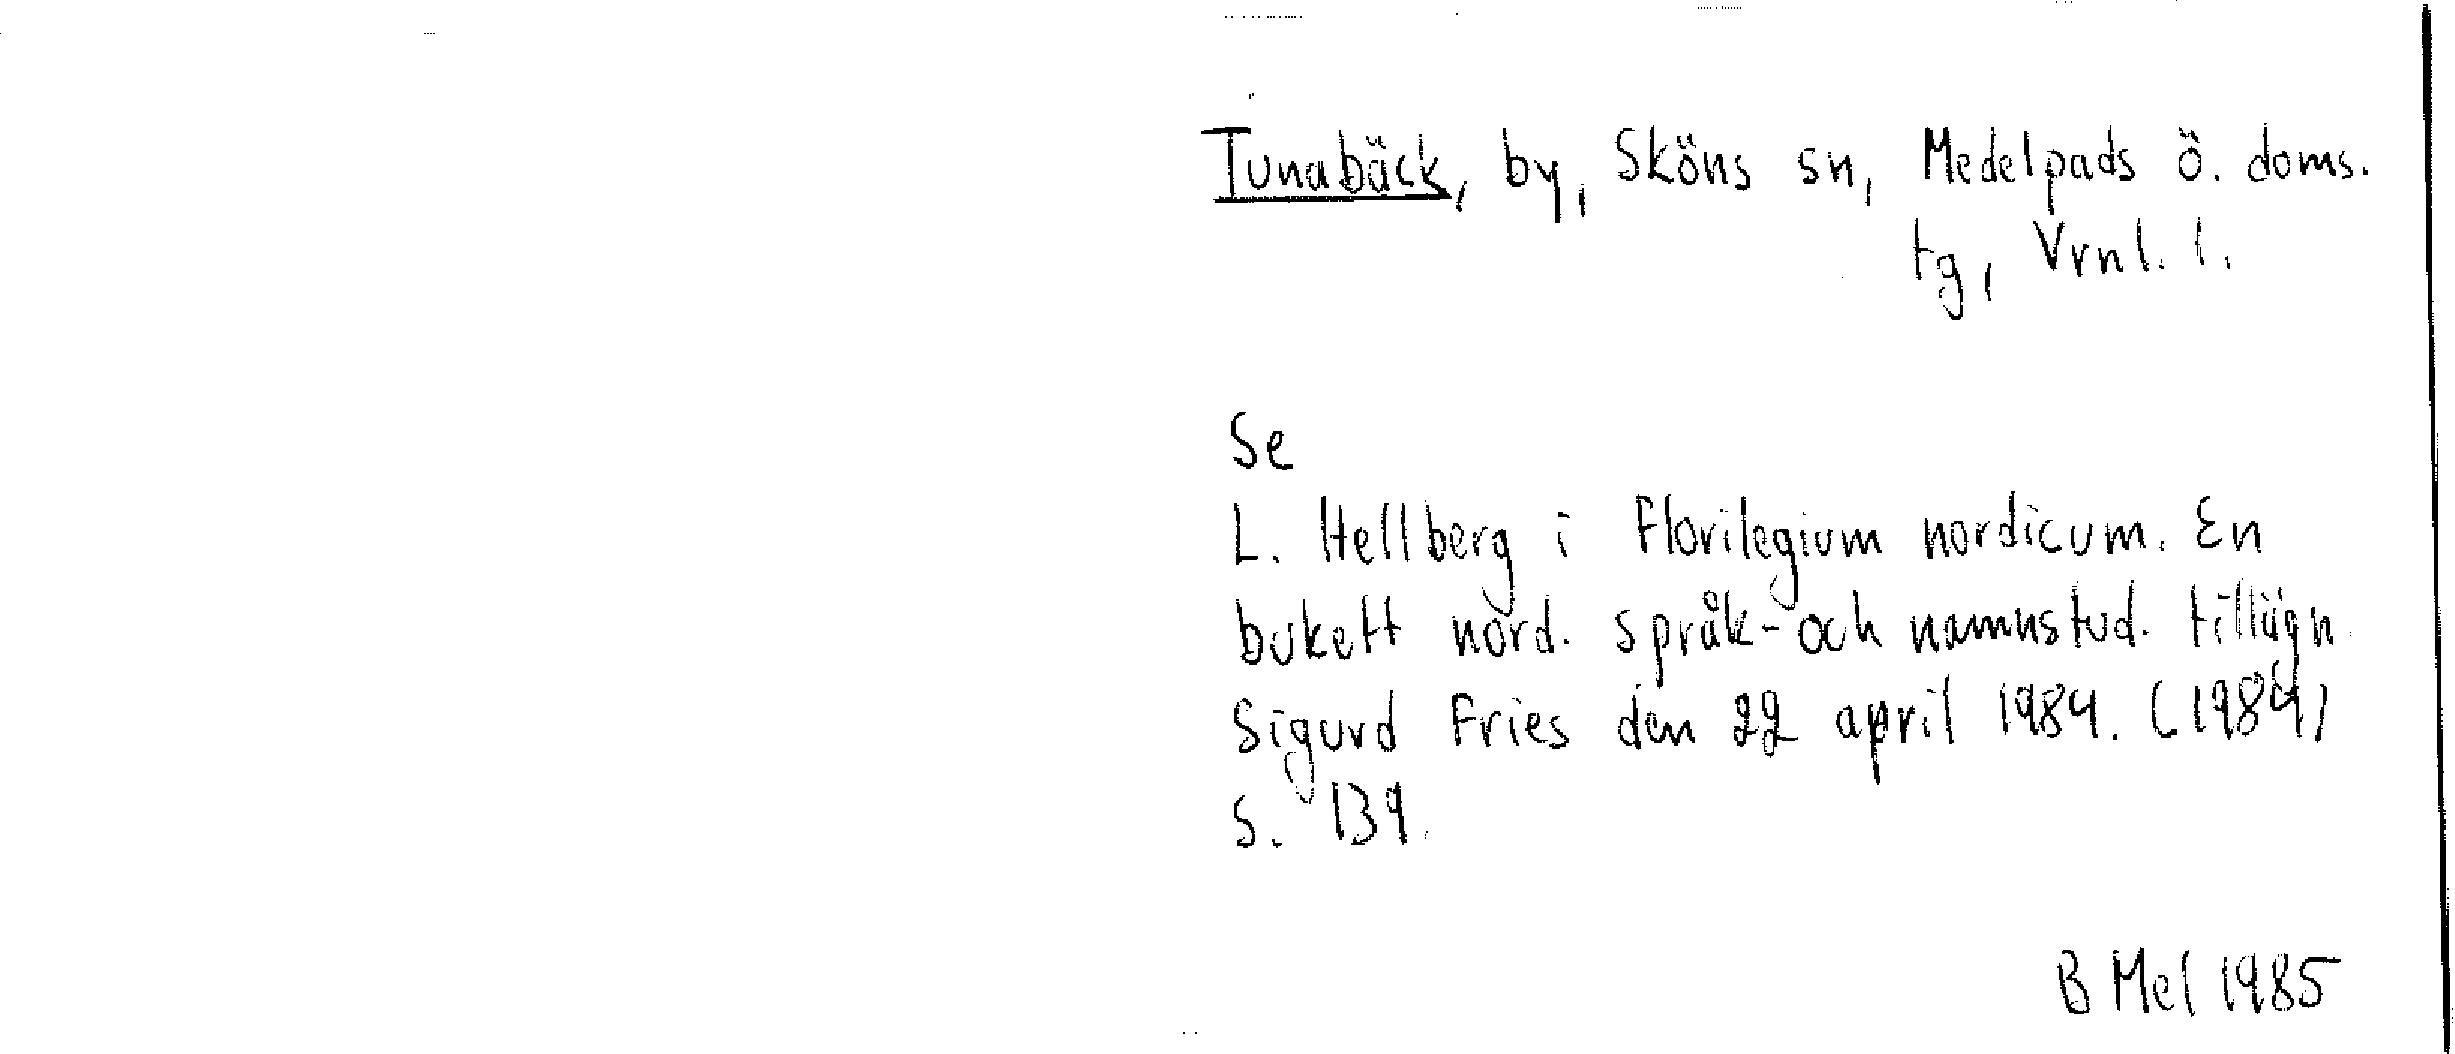 Tunabäck, by, Sköns sn, Medelpads ö. doms.
tg, Vrnl. l.
Se
L. Hellberg i Florilegium nordicum. En
bukett nord. språk- och namnstud. tillägn.
Sigurd Fries den 22 april 1984. (1984)
s. 139.
B Mel 1985